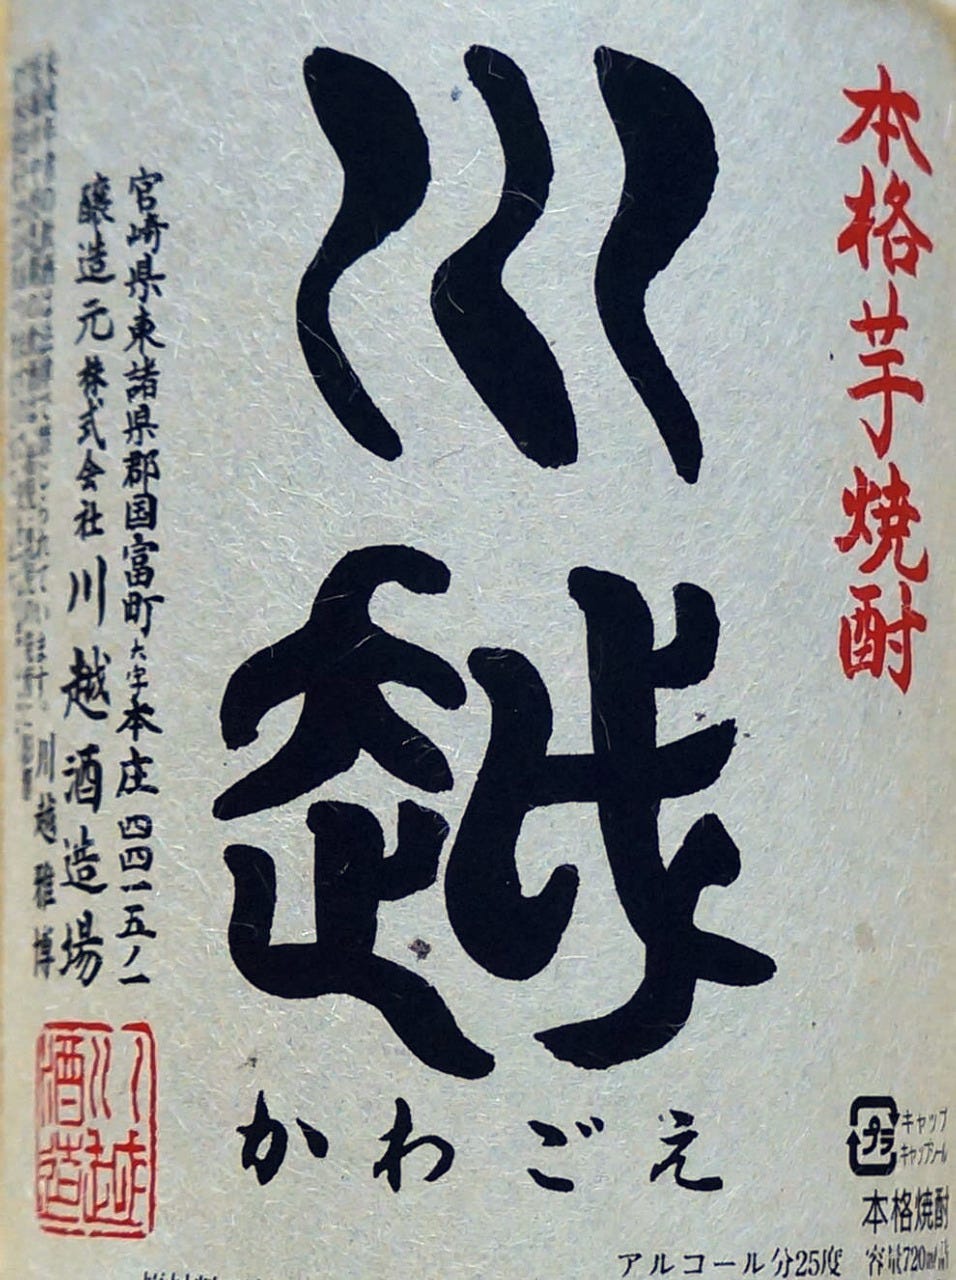 本格芋焼酎
川越
かわごえ
宮崎県東諸県郡国富町大字本庄四四一五ノ一
醸造元 株式会社 川越酒造場
川越雅博
川越酒造
プラ
キャップ
キャップシール
本格焼酎
容量720ml詰
アルコール分25度